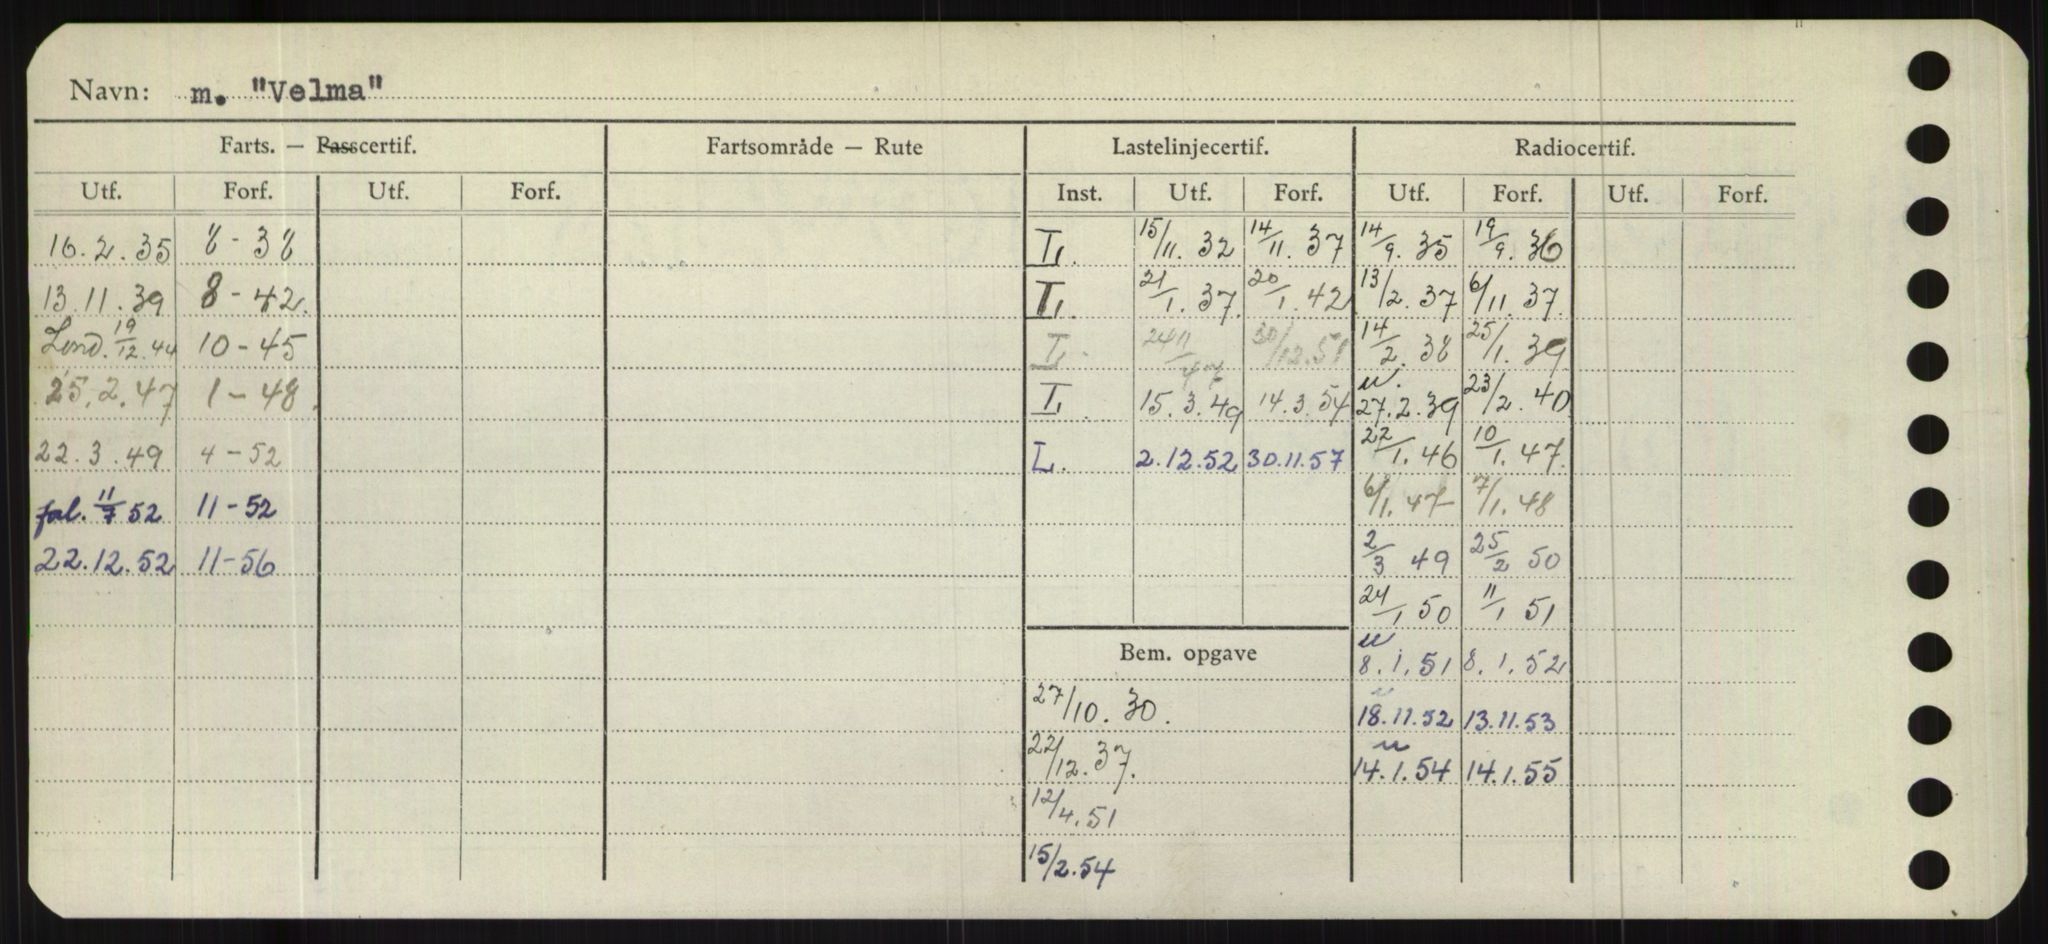 Navn: m. "Velma"
Farts. — Passcertif. Fartsområde — Rute Lastelinjecertif. Radiocertif.
Utf. Forf. Utf. Forf. Inst. Utf. Forf. Utf. Forf. Utf. Forf.
16.2.35 8-38 I. 15/11. 32 14/11. 37 14/9. 35 19/9. 36
13.11.39 8-42. I. 21/1. 37. 20/1. 42 13/2. 37 6/11. 37.
Lond. 19/12.44 10-45 I. 30/12.51 14/2. 38 25/1. 39
25.2.47 1-48. I. 15.3.49 14.3.54 u. 27.2.39 23/2. 40.
22.3.49 4-52 L. 2.12.52 30.11.57 22/1. 46 10/1. 47.
11/7 52 11-52 6/1. 47 7/1. 48
22.12.52 11-56 2/3 49 25/2 50
24/1 50 11/1 51
Bem. opgave u 8.1.51 8.1.52
27/10. 30. u 18.11.52 13.11.53
22/12. 37. u 14.1.54 14.1.55
12/4. 51
15/2. 54